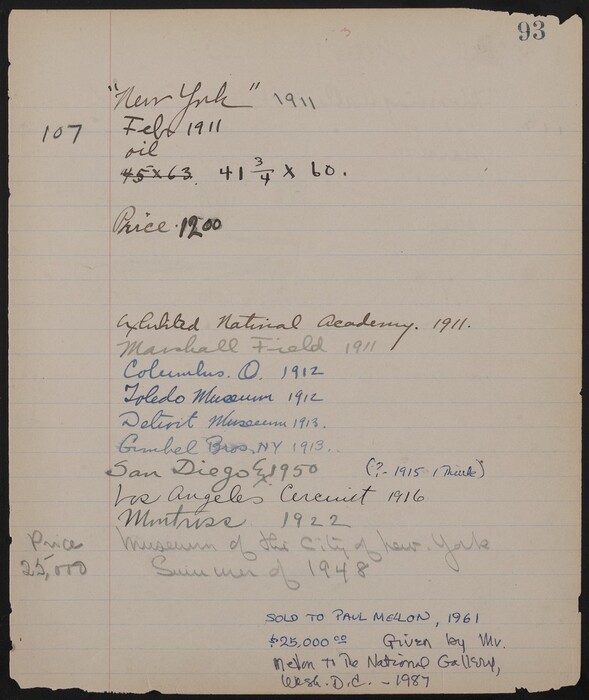 93
"New York" 1911
107 Feb 1911
oil
45x63. 41 3/4 x 60.
Price. 1200
Exhibited National Academy. 1911.
Marshall Field 1911
Columbus. O. 1912
Toledo Museum 1912
Detroit Museum 1913.
Gimbel Bros. NY 1913..
San Diego 1950 (?-1915 I think)
Los Angeles Circuit 1916
Montross 1922
Price Museum of the City of New. York
25,000 Summer of 1948
SOLD TO PAUL MELLON, 1961
$25,000 00 Given by Mr.
Mellon to The National Gallery,
Wash. D.C. - 1987